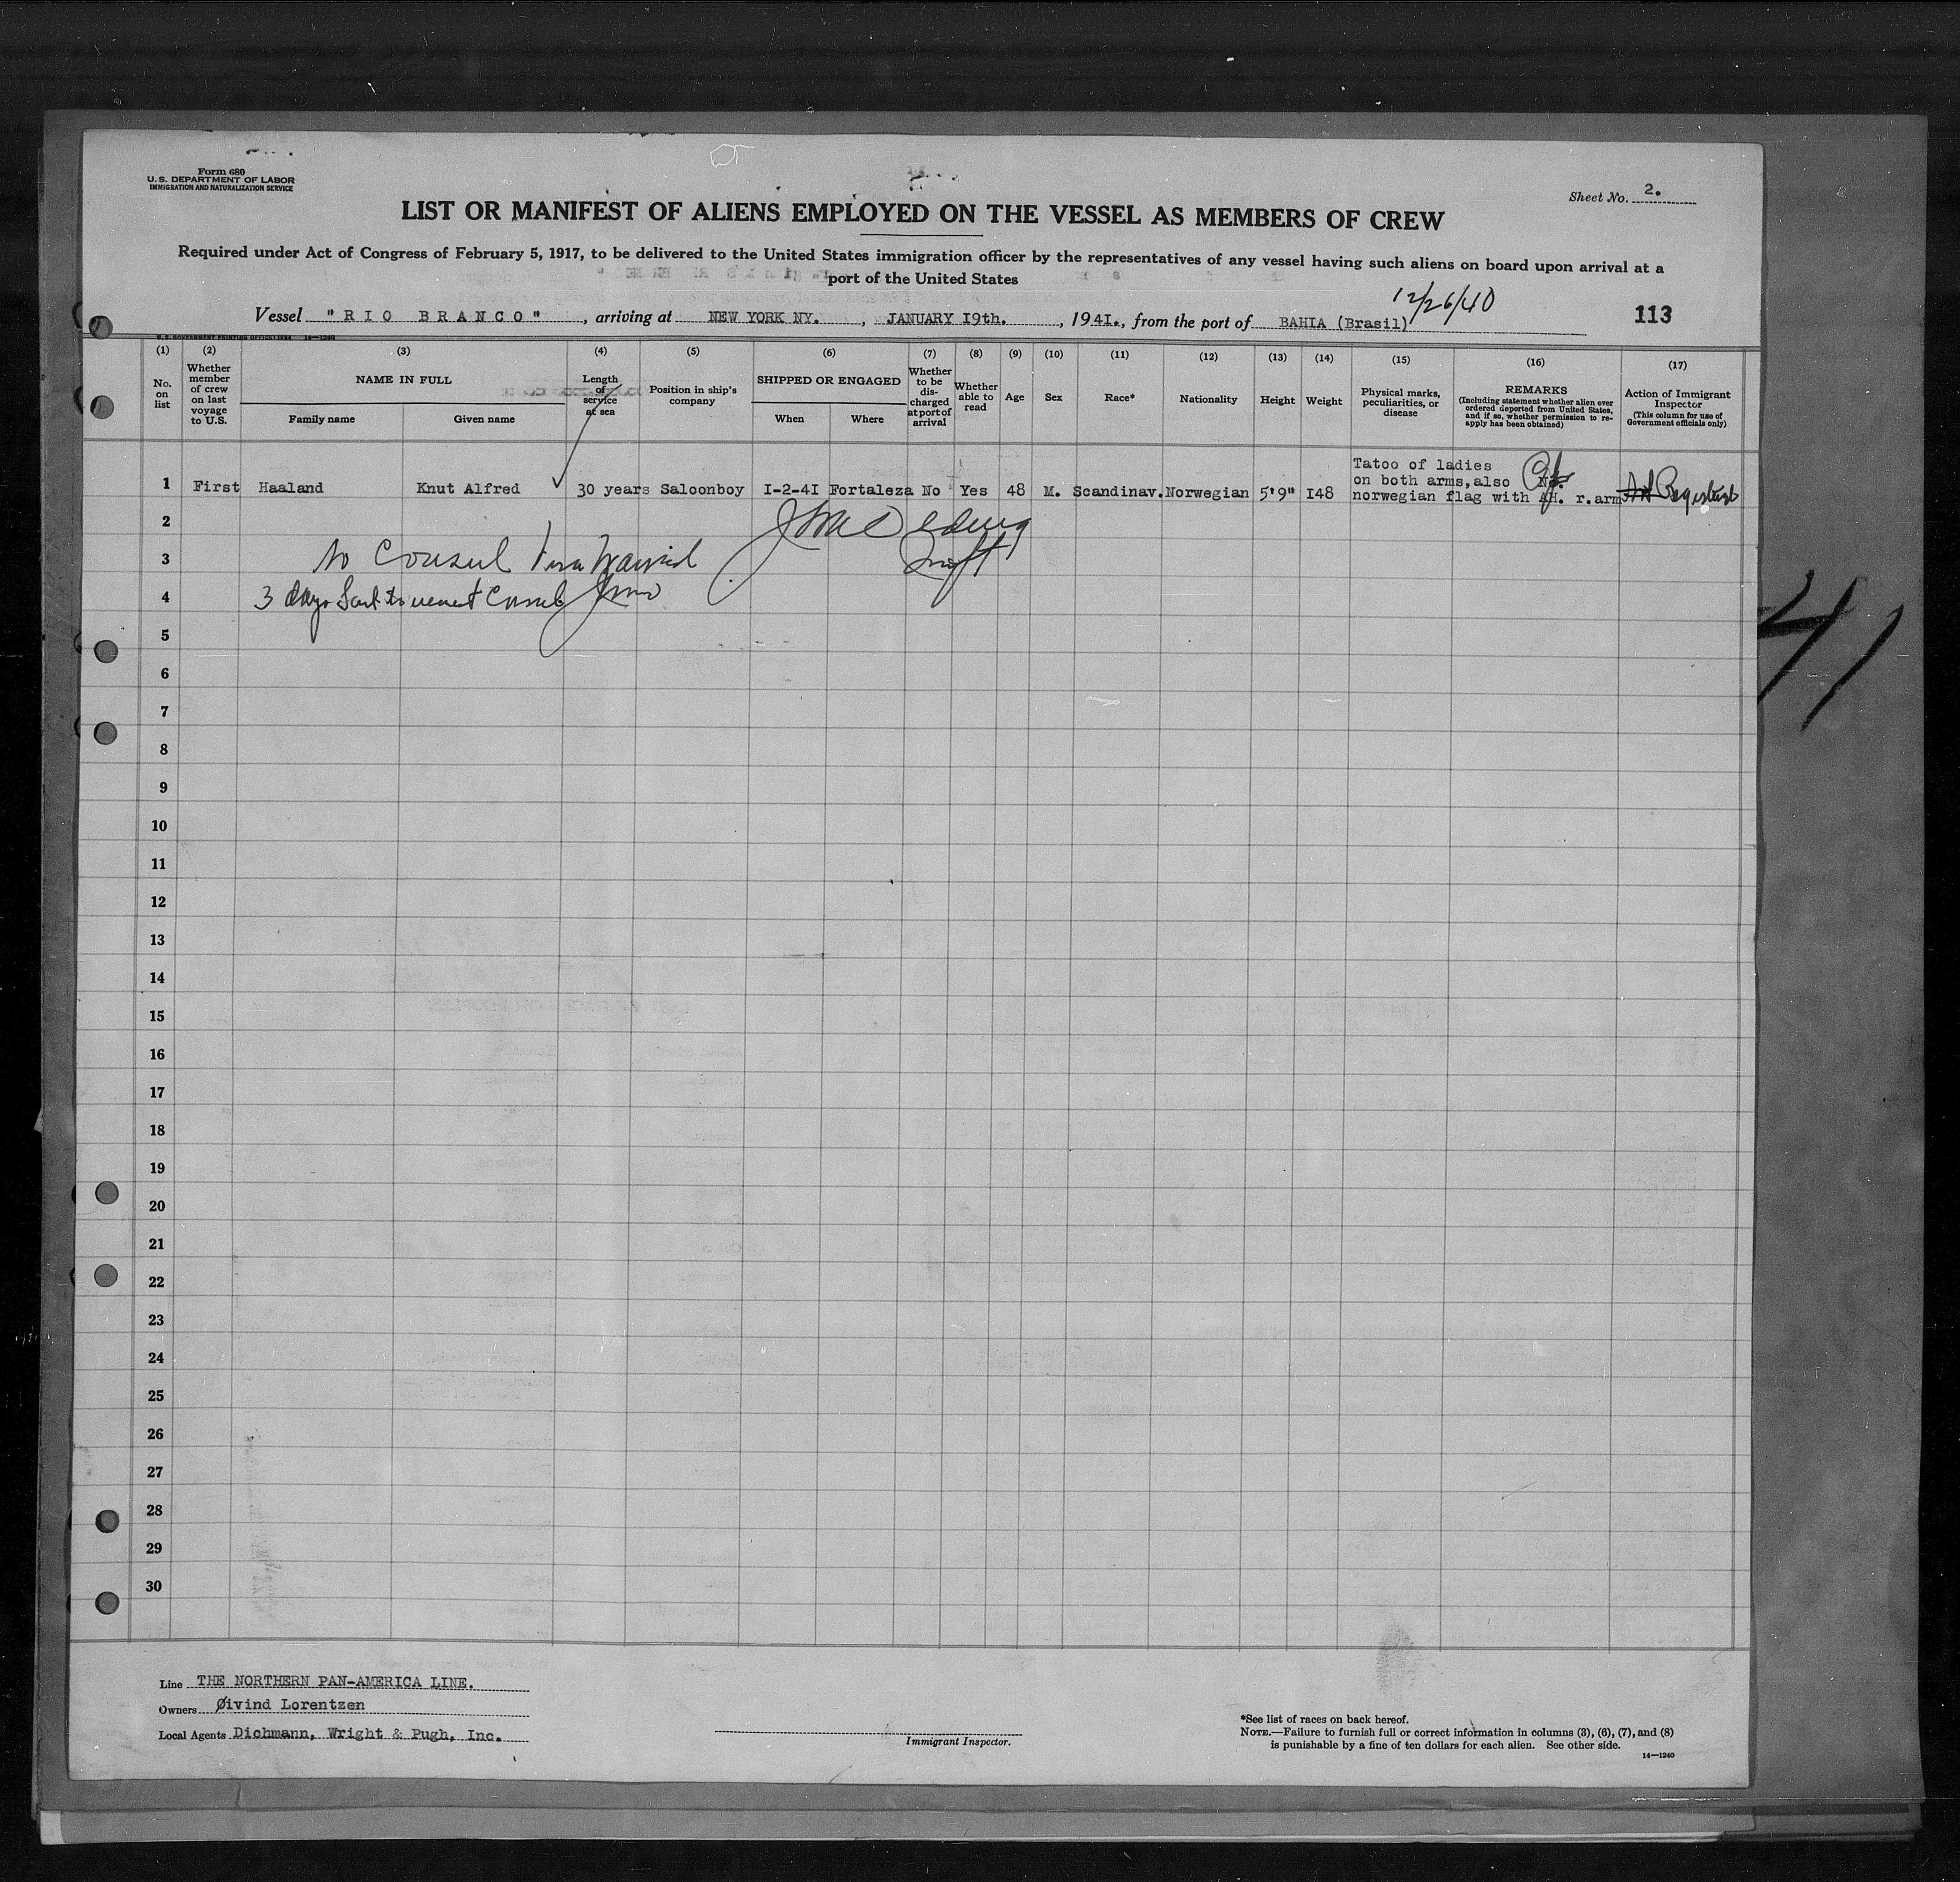 Form 680
U. S. DEPARTMENT OF LABOR
IMMIGRATION AND NATURALIZATION SERVICE
Sheet No. 2.
LIST OR MANIFEST OF ALIENS EMPLOYED ON THE VESSEL AS MEMBERS OF CREW
Required under Act of Congress of February 5, 1917, to be delivered to the United States immigration officer by the representatives of any vessel having such aliens on board upon arrival at a
port of the United States
12/26/40
Vessel "RIO BRANCO", arriving at NEW YORK NY., JANUARY I9th., 194I., from the port of BAHIA (Brasil) 113
U.S. GOVERNMENT PRINTING OFFICE: 1934 14—1240
(1) (2) (3) (4) (5) (6) (7) (8) (9) (10) (11) (12) (13) (14) (15) (16) (17)
No. on list
Whether member of crew on last voyage to U.S.
NAME IN FULL
Family name
Given name
Length of service at sea
Position in ship's company
SHIPPED OR ENGAGED
When
Where
Whether to be discharged at port of arrival
Whether able to read
Age
Sex
Race*
Nationality
Height
Weight
Physical marks, peculiarities, or disease
REMARKS
(Including statement whether alien ever ordered deported from United States, and if so, whether permission to reapply has been obtained)
Action of Immigrant Inspector
(This column for use of Government officials only)
1 First Haaland Knut Alfred 30 years Saloonboy I-2-4I Fortaleza No Yes 48 M. Scandinav. Norwegian 5'9" I48
Tatoo of ladies
on both arms,also
norwegian flag with AH. r.arm
2
3 No Consul Visa Waived
4 3 days
5
6
7
8
9
10
11
12
13
14
15
16
17
18
19
20
21
22
23
24
25
26
27
28
29
30
41
Line THE NORTHERN PAN-AMERICA LINE.
Owners Øivind Lorentzen
Local Agents Dichmann, Wright & Pugh, Inc.
Immigrant Inspector.
*See list of races on back hereof.
NOTE.—Failure to furnish full or correct information in columns (3), (6), (7), and (8)
is punishable by a fine of ten dollars for each alien. See other side.
14—1240